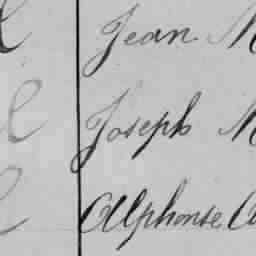 Jean M
Joseph M
Alphonse